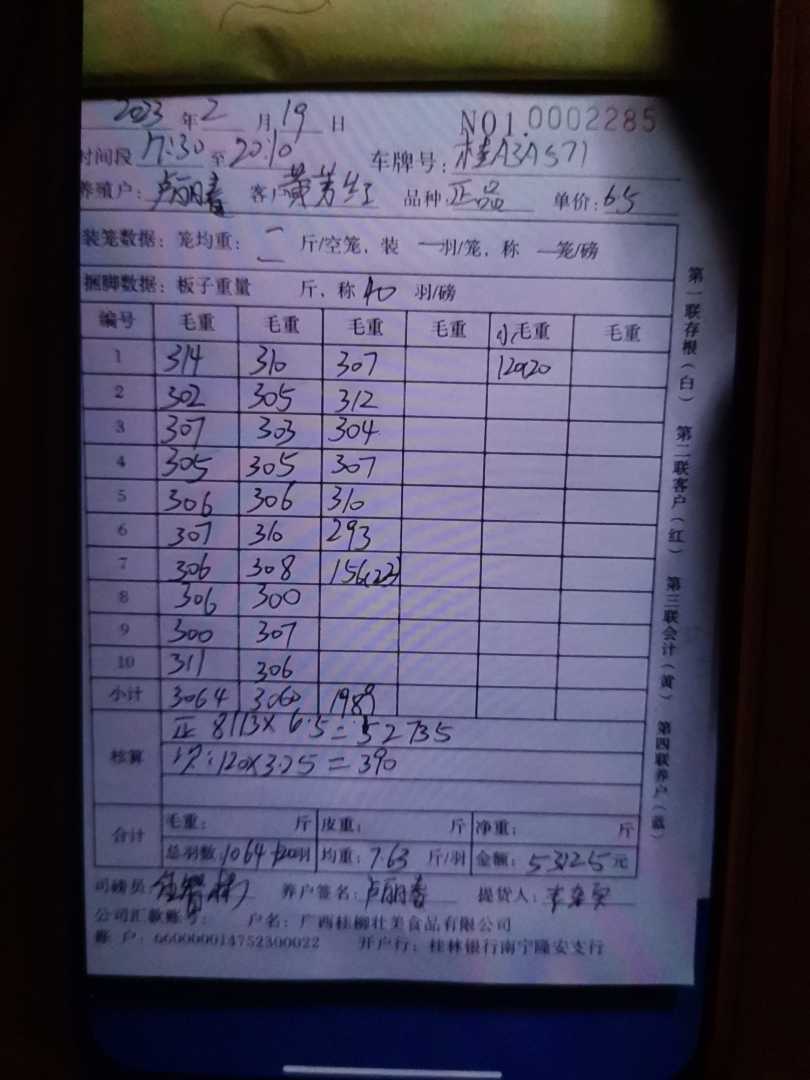 2023 年 2 月 19 日 NO1.0002285
时间段 17:30 至 20:10 车牌号: 桂A3A571
养殖户: 卢丽春 客户 黄芳红 品种: 正品 单价: 6.5
装笼数据: 笼均重: 二 斤/空笼, 装 一 羽/笼, 称 一 笼/磅
捆脚数据: 板子重量 斤, 称 40 羽/磅
编号 毛重 毛重 毛重 毛重 小 毛重 毛重
1 314 310 307 120(20
2 302 305 312
3 307 303 304
4 305 305 307
5 306 306 310
6 307 310 293
7 306 308 156(22)
8 306 300
9 300 307
10 311 306
小计 3064 3060 1989
核算 正 8113×6.5=52735
次:120×3.25=390
合计 毛重: 斤 皮重: 斤 净重: 斤
总羽数: 1064+20羽 均重: 7.63 斤/羽 金额: 53125元
司磅员 养户签名: 卢丽春 提货人:
公司汇款账号: 户名: 广西桂柳壮美食品有限公司
账 户: 660000014752300022 开户行: 桂林银行南宁隆安支行
第一联存根(白) 第二联客户(红) 第三联会计(黄) 第四联养户(蓝)